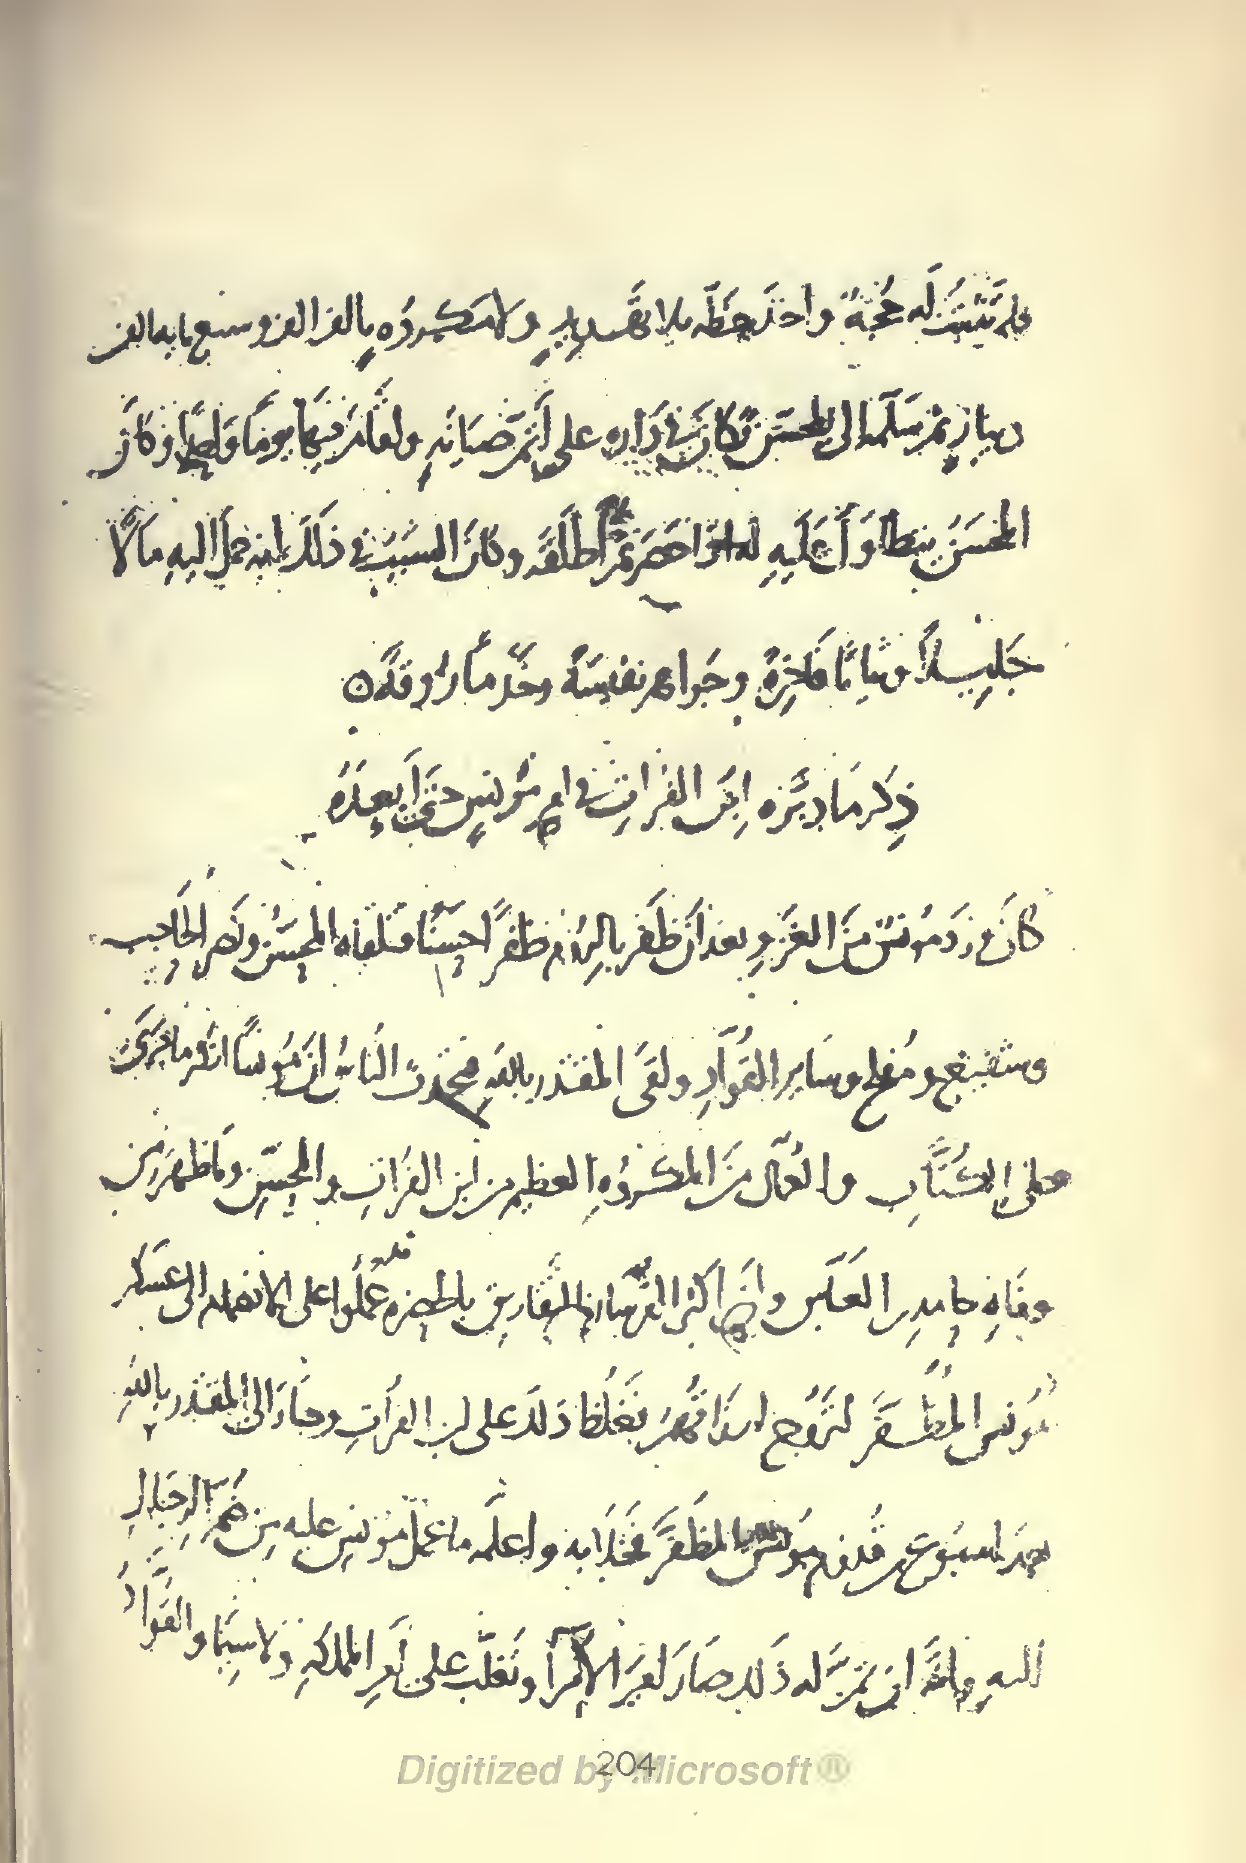 فلم تثبت له حجة واخذ خطه بلا تهديد ولا مكروه بالف الف وسبع مايه الف
دينار ثم سلمه الى المحسن فكان في داره على اتم صيانه واقام فيها يوما واحدا وكان
المحسن يتطاول عليه اذا حضر ثم اطلقه وكان السبب في ذلك انه حمل اليه مالا
جليلا وثيابا فاخرة وجواهر نفيسة وخدما روقة ه
ذكر ما دبره ابن الفرات في امر مونس حتى ابعده
كان ورد مونس من الغزو بعد ان ظفر بالروم ظفرا حسنا فتلقاه المحسن ونصر الحاجب
وشفيع ومفلح وساير القواد ولقى المقتدر بالله فتحدث الناس ان مونسا انكر ما جرى
على الكتاب والعمال من المكروه العظيم من ابن الفرات والمحسن وما ظهر من
وفاة حامد العباس وان اكثر الفرسان التفاريق بالحضره قد عملوا على الانضمام الى عسكر
مونس المظفر لتروج ارزاقهم فغلظ ذلك على ابن الفرات وجاء الى المقتدر بالله
بعد اسبوع من قدوم مونس المظفر فخلا به واعلمه ما عمل مونس عليه من ضم الرجال
اليه وانه ان تم له ذلك صار امير الامرا وتغلب على امر المملكة ولا سيما والقواد
204
Digitized by Microsoft®